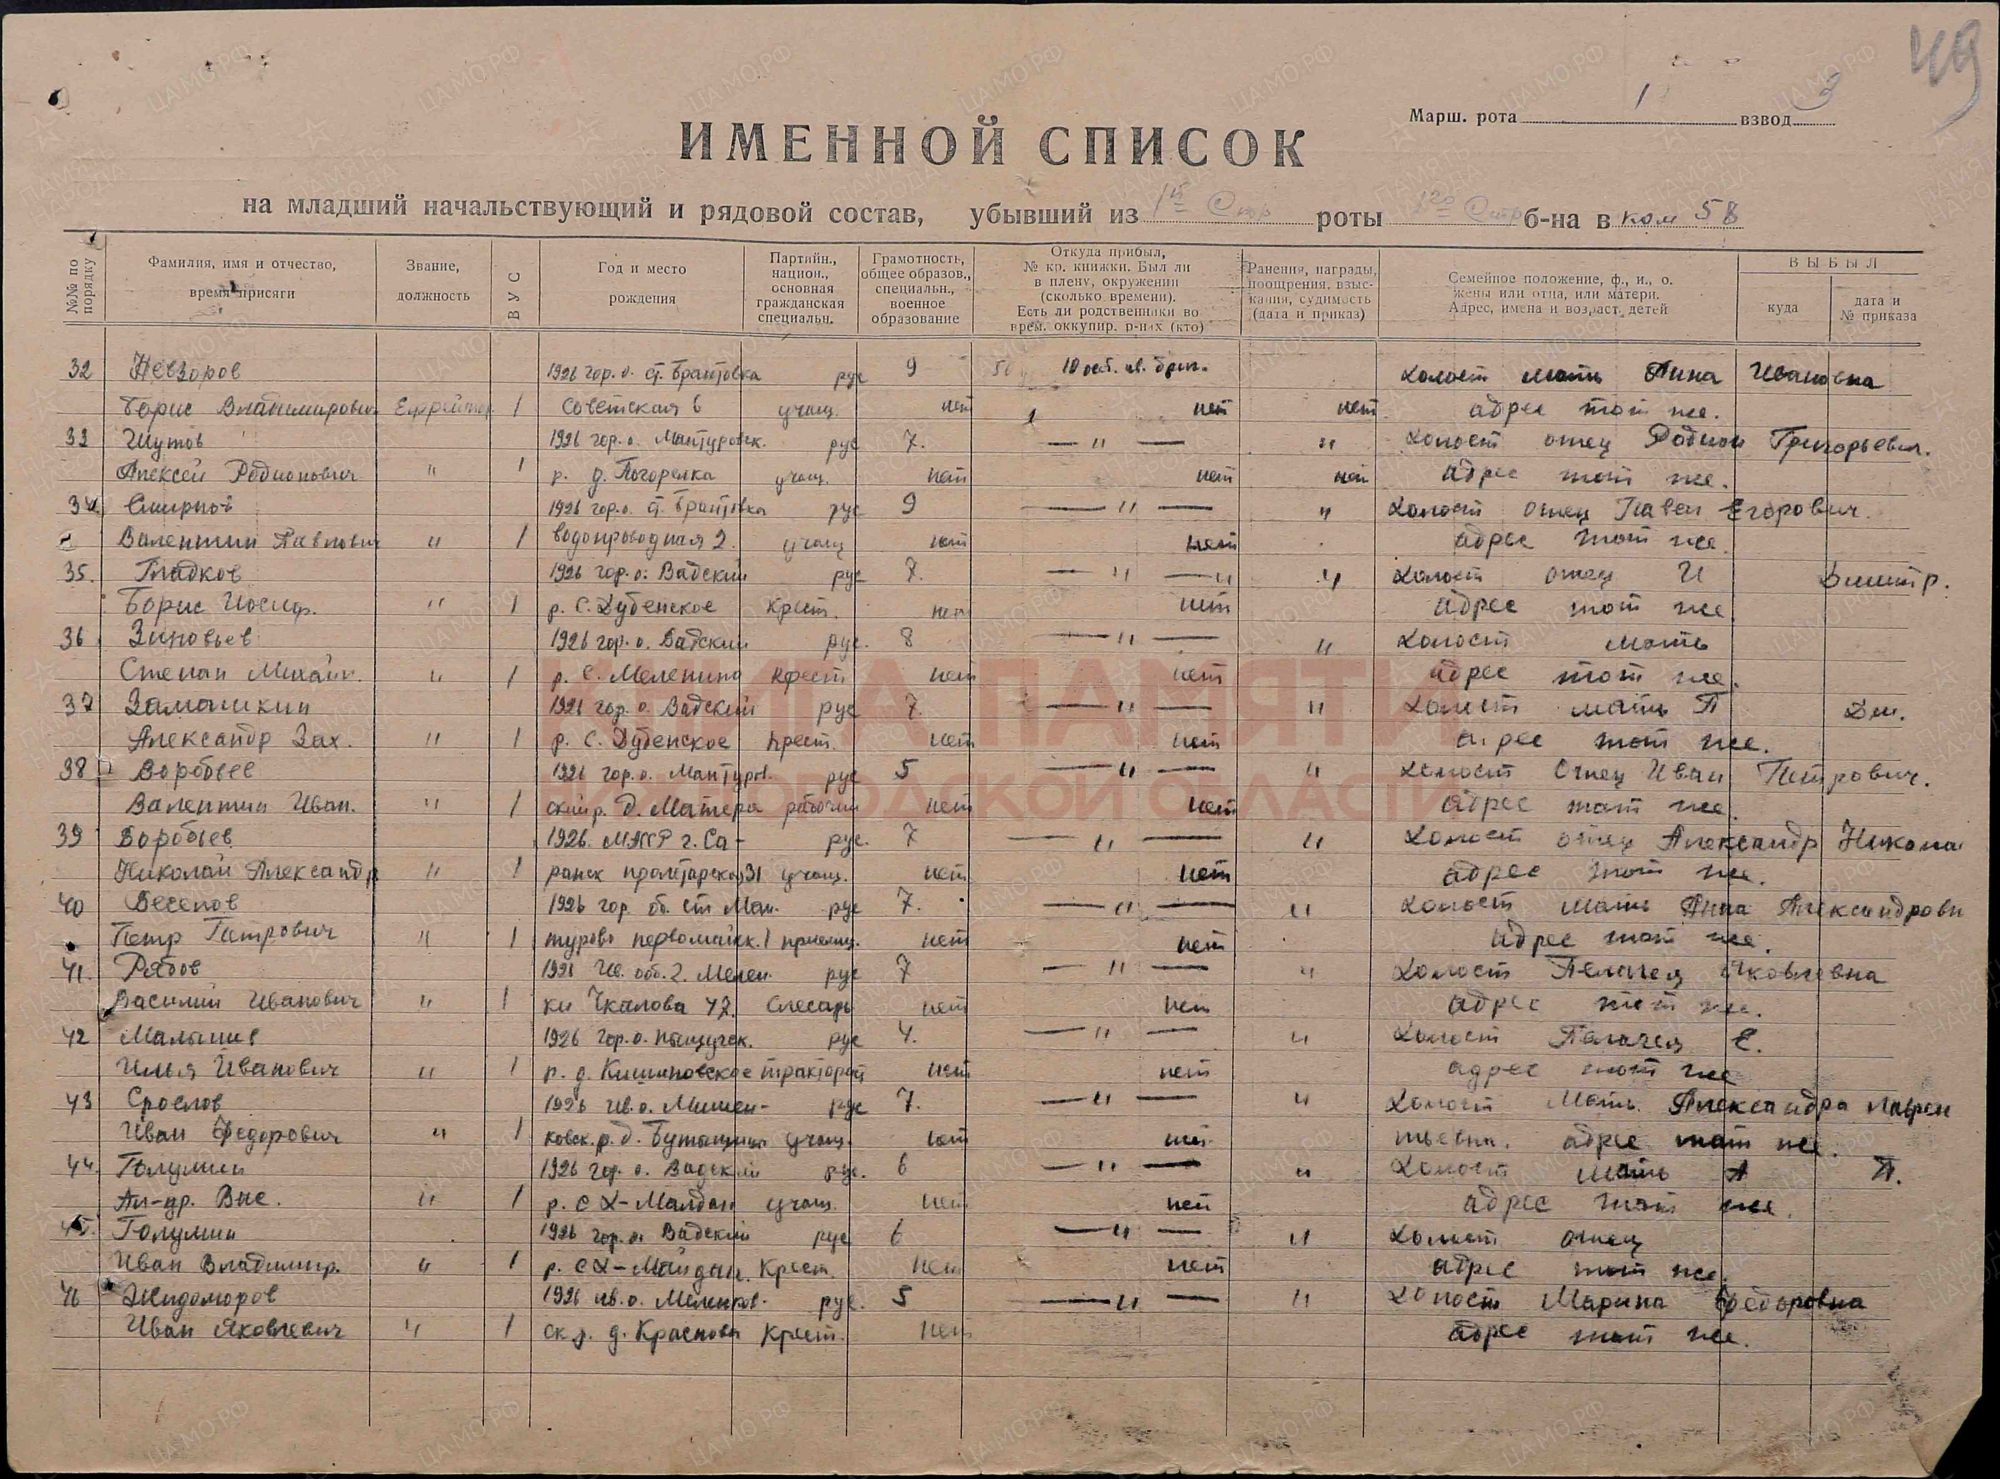 49
Марш. рота 1 взвод 3
ИМЕННОЙ СПИСОК
на младший начальствующий и рядовой состав, убывший из 1й Стр роты 1го Стр б-на в ком 58
№№ по порядку
Фамилия, имя и отчество, время присяги
Звание, должность
ВУС
Год и место рождения
Партийн., национ., основная гражданская специальн.
Грамотность, общее образов., специальн., военное образование
Откуда прибыл, № кр. книжки. Был ли в плену, окружении (сколько времени). Есть ли родственники во врем. оккупир. р-нах (кто)
Ранения, награды, поощрения, взыскания, судимость (дата и приказ)
Семейное положение, ф., и., о. жены или отца, или матери. Адрес, имена и возраст детей
ВЫБЫЛ
куда
дата и № приказа
32 Невзоров 1926 гор. о. ст. Брантовка рус 9 холост мать Анна Ивановна
Борис Владимирович Ефрейтор 1 Советская 6 учащ. нет нет нет адрес тот же.
33 Шутов 1926 гор. о. Мантуровск. рус 7. — " — " холост отец Родион Григорьевич.
Алексей Родионович " 1 р. д. Погорелка учащ. нет нет нет адрес тот же.
34 Смирнов 1926 гор. о. ст. Брантовка рус 9 — " — " холост отец Павел Егорович.
Валентин Павлович " 1 водопроводная 2. учащ нет нет адрес тот же.
35. Гладков 1926 гор. о. Вадский рус 7. — " — " " холост отец И Дмитр.
Борис Иосиф. " 1 р. с. Дубенское крест. нет нет адрес тот же
36. Зиновьев 1926 гор. о. Вадский рус. 8 — " — " холост мать
Степан Михайл. " 1 р. с. Меленино крест нет нет адрес тот же.
37 Замашкин 1926 гор. о. Вадский рус 7. — " — " холост мать П Дм.
Александр Зах. " 1 р. с. Дубенское крест. нет нет адрес тот же.
38 Воробьев 1926 гор. о. Мантуров. рус 5 — " — " холост Отец Иван Петрович.
Валентин Иван. " 1 ский р. д. Матера рабочий нет нет адрес тот же.
39 Воробьев 1926. г. Са- рус. 7 — " — " холост отец Александр Никола
Николай Александр " 1 ранск пролетарская 31 учащ. нет нет адрес тот же.
40 Веселов 1926 гор. об. ст Ман- рус 7. — " — " холост мать Анна Александровн
Петр Петрович " 1 турово первомайск. 1 нет нет адрес тот же.
41. Рябов 1926 Ив. обл. г. Мелен- рус 7 — " — " холост Пелагея Яковлевна
Василий Иванович " 1 ки Чкалова 47. слесарь нет нет адрес тот же.
42 Малышев 1926 гор. о. пыщугск. рус 4. — " — " холост Пелагея Е.
Илья Иванович " 1 р. д. тракторист нет нет адрес тот же
43 Срослов 1926 ив. о. Мелен- рус 7. — " — " холост Мать. Александра Лаврен
Иван Федорович " 1 ковск. р. д. учащ. нет нет тьевна. адрес тот же.
44. Голумин 1926 гор. о. Вадский рус. 6 — " — " холост мать А П.
Ал-др. Вас. " 1 р. с Х-Майдан учащ. нет нет адрес тот же.
45. Голумин 1926 гор. о. Вадский рус 6 — " — " холост отец
Иван Владимир. " 1 р. с Х-Майдан. крест. нет нет адрес тот же.
46 Жидоморов 1926 ив. о. Меленков- рус. 5 — " — " холост Марина Федоровна
Иван Яковлевич " 1 ск. р. д. Краснова крест. нет адрес тот же.
КНИГА ПАМЯТИ
НИЖЕГОРОДСКОЙ ОБЛАСТИ